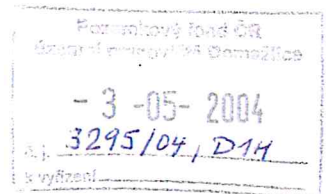 Pozemkový fond ČR
územní pracoviště Domažlice
- 3 -05- 2004
č.j. 3295/04, D1H
k vyřízení